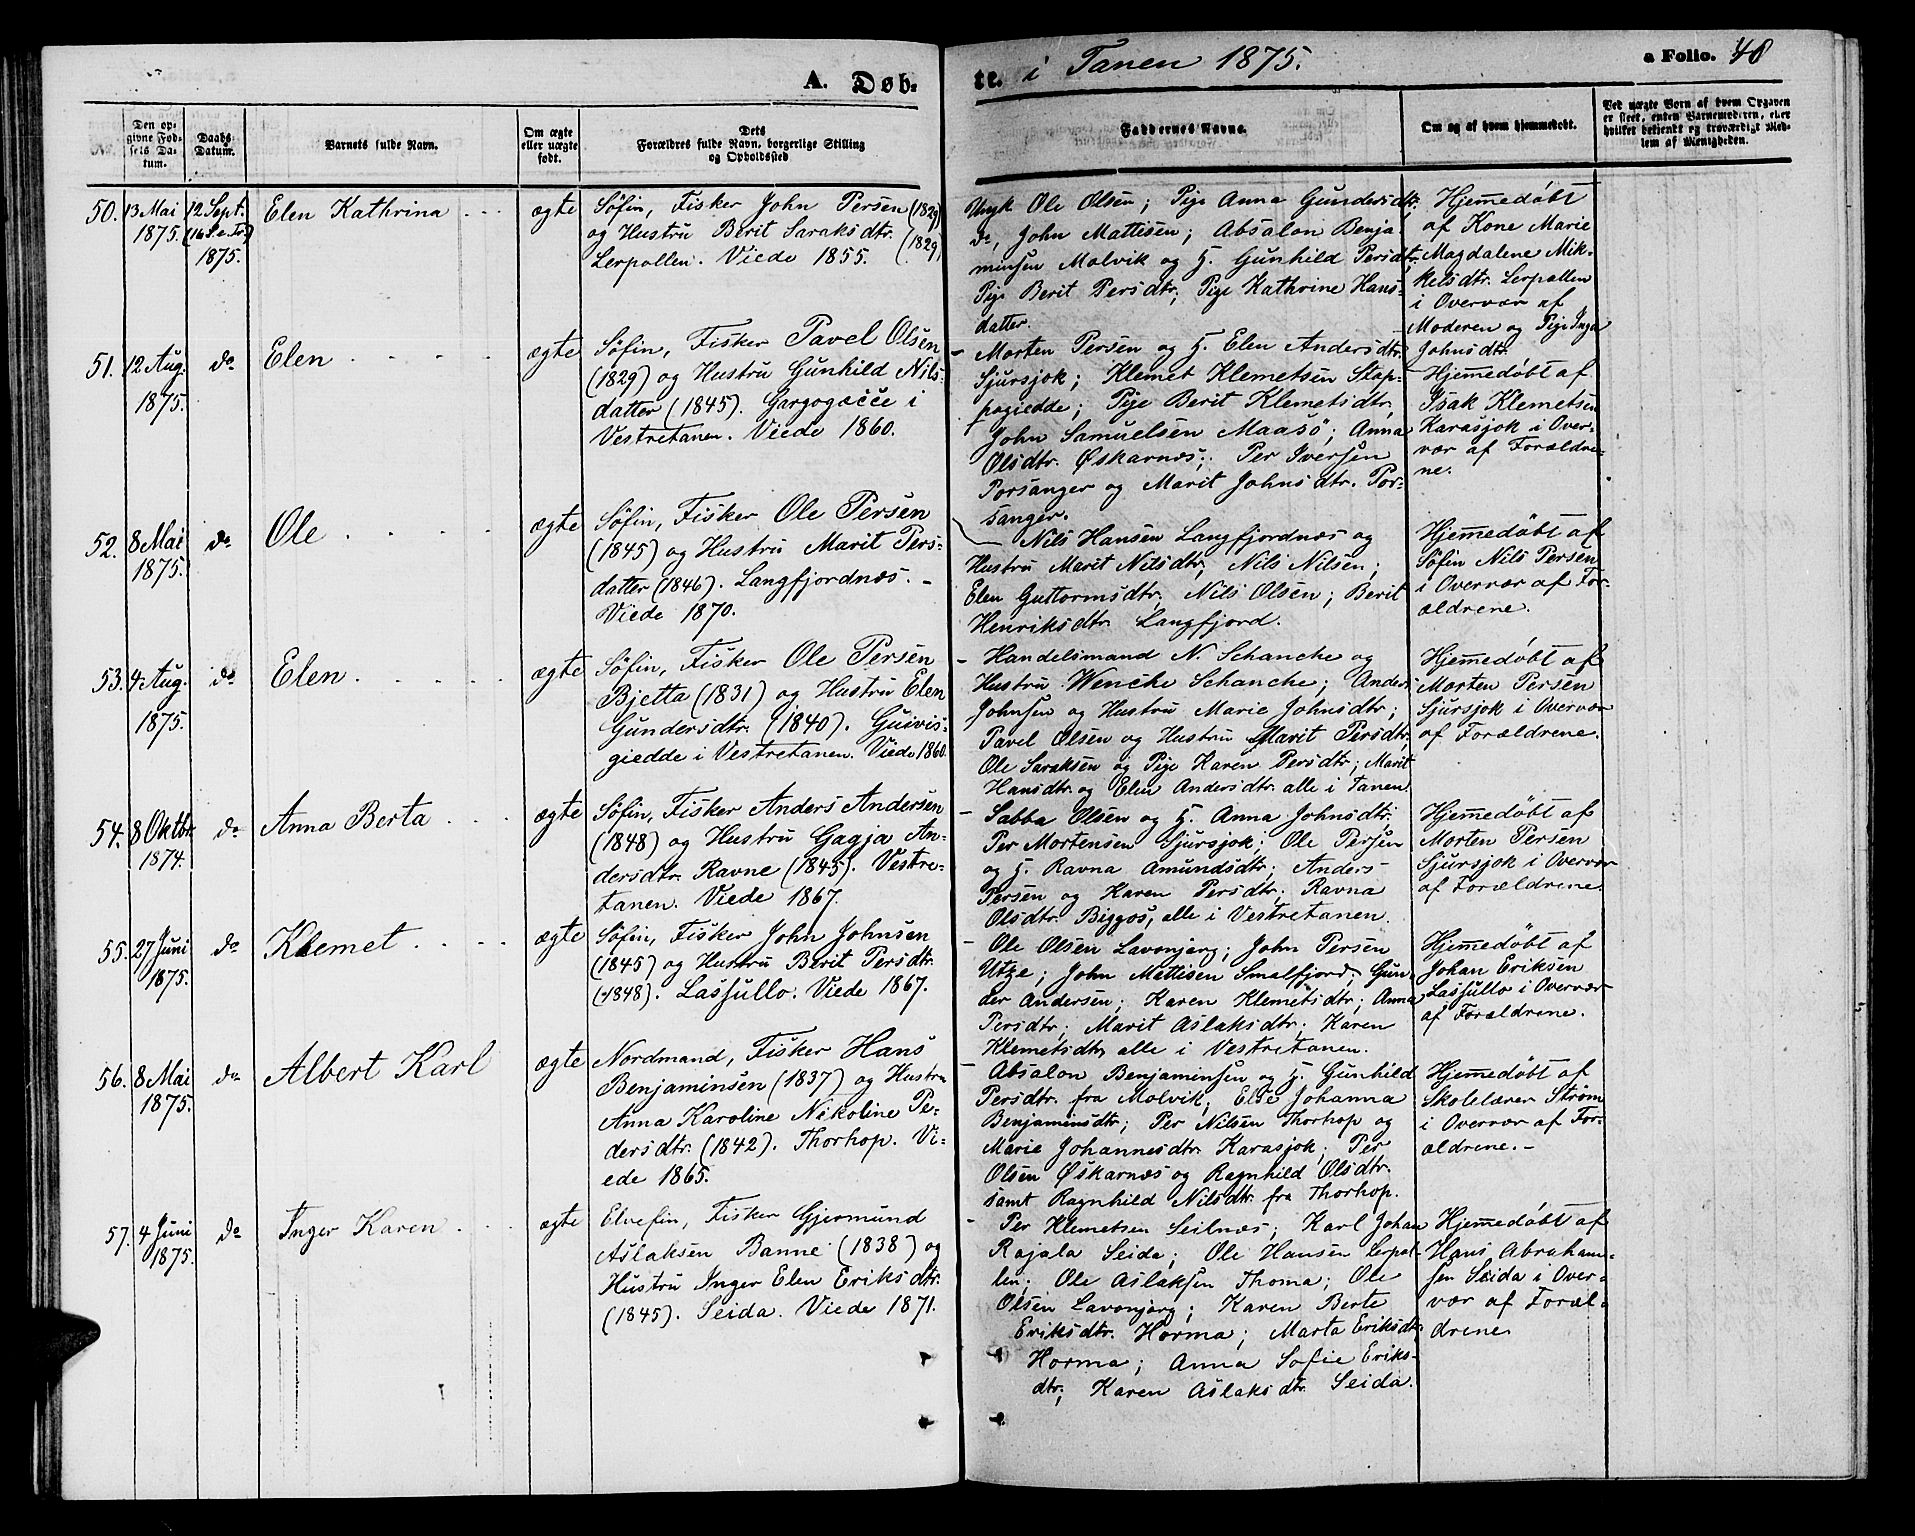 A. Døb-
te. i Tanen 1875.
a Folio. 40
Den op-
givne Fød-
sels Da-
tum.
Daabs-
Datum.
Barnets fulde Navn.
Om ægte
eller uægte
født.
Dets
Forældres fulde Navn, borgerlige Stilling
og Opholdssted
Faddernes Navne.
Om og af hvem hjemmedøbt.
Ved uægte Børn af hvem Opgaven
er skeet, enten Barnemoderen, eller
hvilket bekjendt og troværdigt Med-
lem af Menigheden.
50.
13 Mai
1875.
12 Sept.
(16 S. e. Tr.)
1875.
Elen Kathrina
ægte
Søfin, Fisker John Persen (1829)
og Hustru Berit Saraksdtr. (1829)
Lerpollen. Viede 1855.
Ungk Ole Olsen; Pige Anna Gundersdtr.
do, John Mattisen; Absalon Benja-
minsen Molvik og H. Gunhild Persdtr.
Pige Berit Persdtr; Pige Kathrine Hans-
datter.
Hjemmedøbt
af Kone Marie
Magdalene Mik-
kelsdtr. Lerpollen
i Overvær af
Moderen og Pige Inga
Johnsdtr.
51.
12 Aug.
1875.
do
Elen
ægte
Søfin, Fisker Pavel Olsen
(1829) og Hustru Gunhild Nils-
datter (1845). Gargogæčče i
Vestretanen. Viede 1860.
Morten Persen og H. Elen Andersdtr.
Sjursjok; Klemet Klemetsen Stap-
pogiedde; Pige Berit Klemetsdtr,
John Samuelsen Maasö; Anna
Olsdtr. Øskarnæs; Per Iversen
Porsanger og Marit Johnsdtr. Por-
sanger.
Hjemmedøbt af
Isak Klemetsen
Karasjok i Over-
vær af Forældre-
ne.
52.
8 Mai
1875.
do
Ole
ægte
Søfin, Fisker Ole Persen
(1845) og Hustru Marit Pers-
datter (1846). Langfjordnæs.
Viede 1870.
Nils Hansen Langfjordnæs og
Hustru Marit Nilsdtr, Nils Nilsen;
Elen Guttormsdtr, Nils Olsen; Berit
Henriksdtr. Langfjord.
Hjemmedøbt af
Søfin Nils Persen
i Overvær af For-
ældrene.
53.
4 Aug.
1875.
do
Elen
ægte
Søfin, Fisker Ole Persen
Bjetta (1831) og Hustru Elen
Gundersdtr. (1840). Guivis-
giedde i Vestretanen. Viede 1860.
Handelsmand N. Schanche og
Hustru Wencke Schanche; Anders
Johnsen og Hustru Marie Johnsdtr;
Pavel Olsen og Hustru Marit Persdtr,
Ole Saraksen og Pige Karen Persdtr; Marit
Hansdtr. og Elen Andersdtr. alle i Tanen
Hjemmedøbt af
Morten Persen
Sjursjok i Overvær
af Forældrene.
54.
8 Oktbr.
1874.
do
Anna Berta
ægte
Søfin, Fisker Anders Andersen
(1848) og Hustru Gagja An-
dersdtr. Ravne (1845). Vestre-
tanen. Viede 1867.
Sabba Olsen og H. Anna Johnsdtr;
Per Mortensen Sjursjok; Ole Persen
og H. Ravna Amundsdtr; Anders
Persen og Karen Persdtr; Ravna
Olsdtr. Biggos, alle i Vestretanen.
Hjemmedøbt af
Morten Persen
Sjursjok i Overvær
af Forældrene.
55.
27 Juni
1875.
do
Klemet
ægte
Søfin, Fisker John Johnsen
(1845) og Hustru Berit Persdtr.
(1848). Lassullo. Viede 1867.
Ole Olsen Lavonjarg; John Persen
Utze; John Mattisen Smalfjord; Gun-
der Andersen; Karen Klemetsdtr; Anna
Persdtr; Marit Aslaksdtr; Karen
Klemetsdtr, alle i Vestretanen.
Hjemmedøbt af
Johan Eriksen
Lassullo i Overvær
af Forældrene.
56.
8 Mai
1875.
do
Albert Karl
ægte
Nordmand, Fisker Hans
Benjaminsen (1837) og Hustru
Anna Karoline Nikoline Pe-
dersdtr. (1842). Thorhop. Vi-
ede 1865.
Absalon Benjaminsen og H. Gunhild
Persdtr. fra Molvik; Else Johanna
Benjaminsdtr; Per Nilsen Thorhop og
Marie Johannesdtr. Karasjok; Per
Olsen Øskarnæs og Ragnhild Olsdtr.
samt Ragnhild Nilsdtr. fra Thorhop.
Hjemmedøbt af
Skolelærer Strøm
i Overvær af For-
ældrene.
57.
4 Juni
1875.
do
Inger Karen
ægte
Elvefin, Fisker Gjermund
Aslaksen Banne (1838) og
Hustru Inger Elen Eriksdtr.
(1845). Seida. Viede 1871.
Per Klemetsen Seilnæs; Karl Johan
Rajala Seida; Ole Hansen Lerpol-
len; Ole Aslaksen Thoma; Ole
Olsen Lavonjarg; Karen Berte
Eriksdtr. Horma; Marta Eriksdtr.
Horma; Anna Sofie Eriks-
dtr, Karen Aslaksdtr. Seida.
Hjemmedøbt af
Hans Abraham-
sen Seida i Over-
vær af Foræl-
drene